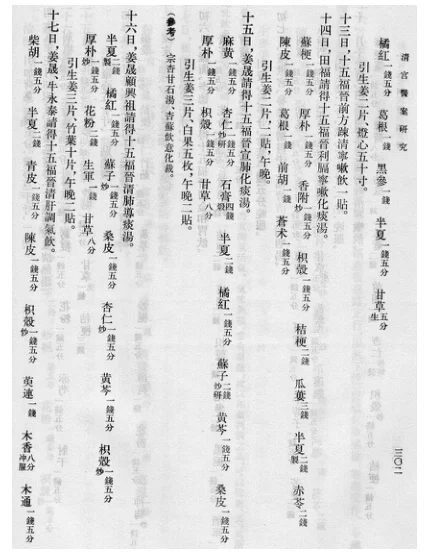 清宮醫案研究
三〇二
橘紅一錢五分 葛根一錢 黑參一錢 半夏一錢五分 甘草五分生
引生姜二片、燈心五十寸。
十三日,十五福晉前方疎清寧嗽飲一貼。
十四日,田福請得十五福晉利膈寧嗽化痰湯。
蘇梗一錢五分 厚朴一錢五分 香附一錢五分炒 枳殼一錢五分 桔梗二錢 瓜蔞三錢 半夏二錢製 赤苓二錢
陳皮一錢五分 葛根一錢 前胡一錢 蒼朮一錢五分
引生姜二片,二貼,午晚。
十五日,姜晟請得十五福晉宣肺化痰湯。
麻黃一錢五分 杏仁一錢五分炒研 石膏四錢煅 半夏二錢 橘紅一錢五分 蘇子二錢炒研 黃芩一錢五分 桑皮一錢五分
厚朴一錢五分 枳殼一錢五分 甘草八分
引生姜三片、白果五枚,午晚二貼。
(參考) 宗杏甘石湯、杏蘇飲意化裁。
十六日,姜晟顧興祖請得十五福晉清肺導痰湯。
半夏二錢製 橘紅一錢五分 蘇子一錢五分炒 桑皮一錢五分 杏仁一錢五分炒 黃芩一錢五分 枳殼一錢五分炒
厚朴一錢五分炒 花粉二錢 生軍一錢 甘草八分
引生姜三片、竹葉十片,午晚二貼。
十七日,姜晟、牛永泰請得十五福晉清肝調氣飲。
柴胡一錢五分 半夏二錢 青皮一錢五分 陳皮一錢五分 枳殼一錢五分炒 萸連一錢 木香八分沖服 木通一錢五分